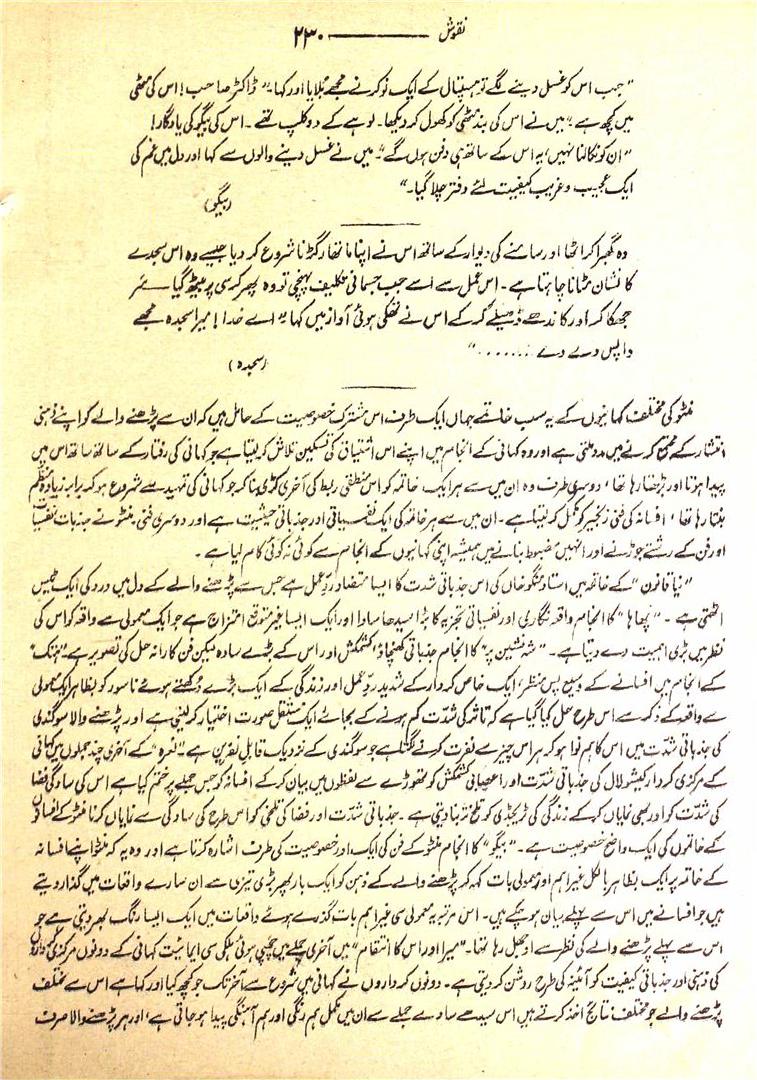 نقوش ——— ۲۳۰
"جب اس کو غسل دینے لگے تو ہسپتال کے ایک نوکر نے مجھے بلایا اور کہا۔" ڈاکٹر صاحب! اس کی مٹھی
میں کچھ ہے" میں نے اس کی بند مٹھی کو کھول کر دیکھا۔ لوہے کے دو کلپ تھے۔ اس کی بیگو کی یادگار!
"ان کو نکالنا نہیں، یہ اس کے ساتھ ہی دفن ہوں گے" میں نے غسل دینے والوں سے کہا اور دل میں غم کی
ایک عجیب و غریب کیفیت لئے دفتر چلا گیا۔"
(بیگو)
وہ گھبرا کر اٹھا اور سامنے کی دیوار کے ساتھ اس نے اپنا ماتھا رگڑنا شروع کر دیا جیسے وہ اس سجدے
کا نشان مٹانا چاہتا ہے۔ اس عمل سے اسے جب جسمانی تکلیف پہنچی تو وہ پھر کرسی پر بیٹھ گیا — سر
جھکا کر اور کاندھے ڈھیلے کر کے اس نے تھکی ہوئی آواز میں کہا "اے خدا! میرا سجدہ مجھے
واپس دے دے ......."
(سجدہ)
منٹو کی مختلف کہانیوں کے یہ سب خاتمے جہاں ایک طرف اس مشترک خصوصیت کے حامل ہیں کہ ان سے پڑھنے والے کو اپنے ذہنی
انتشار کے مجتمع کرنے میں مدد ملتی ہے اور وہ کہانی کے انجام میں اپنے اس اشتیاق کی تسکین تلاش کر لیتا ہے جو کہانی کی رفتار کے ساتھ ساتھ اس میں
پیدا ہوتا اور بڑھتا رہا تھا، دوسری طرف وہ ان میں سے ہر ایک خاتمہ کو اس منطقی ربط کی آخری کڑی بنا کر جو کہانی کی تمہید سے شروع ہو کر برابر زیادہ منظم
بنتا رہا تھا، افسانہ کی فنی زنجیر کو مکمل کر لیتا ہے۔ ان میں سے ہر خاتمہ کی ایک نفسیاتی اور جذباتی حیثیت ہے اور دوسری فنی منٹو نے جذبات نفسیات
اور فن کے رشتے جوڑنے اور انہیں مضبوط بنانے میں ہمیشہ اپنی کہانیوں کے انجام سے کوئی نہ کوئی کام لیا ہے۔
"نیا قانون" کے خاتمہ میں استاد منگو خاں کی اس جذباتی شدت کا ایسا متضاد رد عمل ہے جس سے پڑھنے والے کے دل میں درد کی ایک ٹیس
اٹھتی ہے۔ "پھاہا" کا انجام واقعہ نگاری اور نفسیاتی تجزیہ کا بڑا سیدھا سادا اور ایک ایسا غیر متوقع امتزاج ہے جو ایک معمولی سے واقعہ کو اس کی
نظر میں بڑی اہمیت دے دیتا ہے۔ "شہ نشین پر" کا انجام جذباتی کھنچاؤ، کشمکش اور اس کے بڑے سادہ لیکن فن کارانہ حل کی تصویر ہے "ہتک"
کے انجام میں افسانے کے وسیع پس منظر، ایک خاص کردار کے شدید رد عمل اور زندگی کے ایک بڑے دکھتے ہوئے ناسور کو بظاہر ایک معمولی
سے واقعہ کے ذکر سے اس طرح حل کیا گیا ہے کہ تاثر کی شدت کم ہونے کے بجائے ایک مستقل صورت اختیار کر لیتی ہے اور پڑھنے والا سوگندھی
کی جذباتی شدت میں اس کا ہم نوا ہو کر ہر اس چیز سے نفرت کرنے لگتا ہے جو سوگندی کے نزدیک قابل نفرین ہے "نعرہ" کے آخری چند جملوں میں کہانی
کے مرکزی کردار کیشو لال کی جذباتی شدت اور اعصابی کشمکش کو تھوڑے سے لفظوں میں بیان کر کے افسانہ کو جس جملے پر ختم کیا ہے اس کی سادگی فضا
کی شدت کو اور بھی نمایاں کر کے زندگی کی ٹریجڈی کو تلخ تر بنا دیتی ہے۔ جذباتی شدت اور فضا کی تلخی کو اس طرح کی سادگی سے نمایاں کرنا منٹو کے افسانوں
کے خاتموں کی ایک واضح خصوصیت ہے۔ "بیگو" کا انجام منٹو کے فن کی ایک اور خصوصیت کی طرف اشارہ کرتا ہے اور وہ یہ کہ منٹو اپنے افسانہ
کے خاتمہ پر ایک بظاہر بالکل غیر اہم اور معمولی بات کہہ کر پڑھنے والے کے ذہن کو ایک بار پھر بڑی تیزی سے ان سارے واقعات میں گذار دیتے
ہیں جو افسانے میں اس سے پہلے بیان ہو چکے ہیں۔ اس مرتبہ یہ معمولی سی غیر اہم بات گذرے ہوئے واقعات میں ایک ایسا رنگ بھر دیتی ہے جو
اس سے پہلے پڑھنے والے کی نظر سے اوجھل رہا تھا۔ "میرا اور اس کا انتقام" میں آخری جملے میں چھپی ہوئی ہلکی سی ایمائیت کہانی کے دونوں مرکزی کرداروں
کی ذہنی اور جذباتی کیفیت کو آئینہ کی طرح روشن کر دیتی ہے۔ دونوں کرداروں نے کہانی میں شروع سے آخر تک جو کچھ کیا اور کہا ہے اس سے مختلف
پڑھنے والے جو مختلف نتائج اخذ کرتے ہیں اس سیدھے سادے جملے سے ان میں مکمل ہم رنگی اور ہم آہنگی پیدا ہو جاتی ہے، اور ہر پڑھنے والا صرف